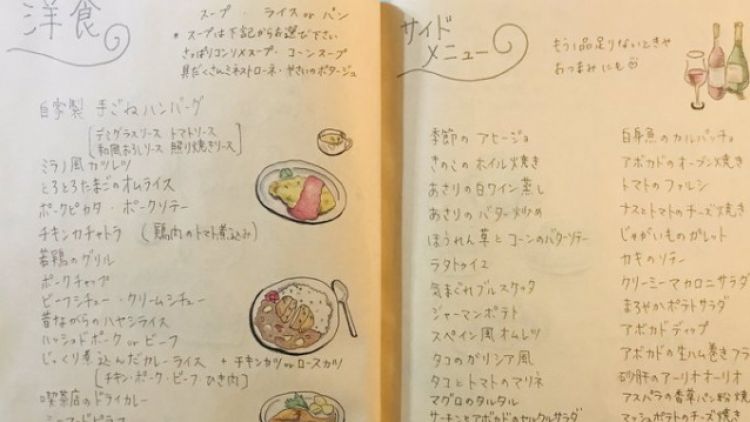 洋食
スープ・ライス or パン
* スープは下記からお選び下さい
さっぱりコンソメスープ・コーンスープ
具だくさんミネストローネ・やさいのポタージュ
自家製 手ごねハンバーグ
デミグラスソース トマトソース
和風おろしソース 照り焼きソース
ミラノ風カツレツ
とろとろたまごのオムライス
ポークピカタ・ポークソテー
チキンカチャトラ (鶏肉のトマト煮込み)
若鶏のグリル
ポークチャップ
ビーフシチュー・クリームシチュー
昔ながらのハヤシライス
ハッシュドポーク or ビーフ
じっくり煮込んだカレーライス + チキンカツ or ロースカツ
[チキン・ポーク・ビーフ・ひき肉]
喫茶店のドライカレー
シーフードピラフ
サイドメニュー
もう1品足りないときや
おつまみにも
季節の アヒージョ
きのこの ホイル焼き
あさりの白ワイン蒸し
あさりの バター炒め
ほうれん草とコーンのバターソテー
ラタトゥイユ
気まぐれブルスケッタ
ジャーマンポテト
スペイン風オムレツ
タコのガリシア風
タコとトマトのマリネ
マグロのタルタル
サーモンとアボカドのセルクルサラダ
白身魚のカルパッチョ
アボカドのオーブン焼き
トマトのファルシ
ナスとトマトのチーズ焼き
じゃがいものガレット
カキのソテー
クリーミーマカロニサラダ
まろやかポテトサラダ
アボカドディップ
アボカドの生ハム巻きフラ
砂肝のアーリオオーリオ
アスパラの香草パン粉焼
マッシュポテトのチーズ焼